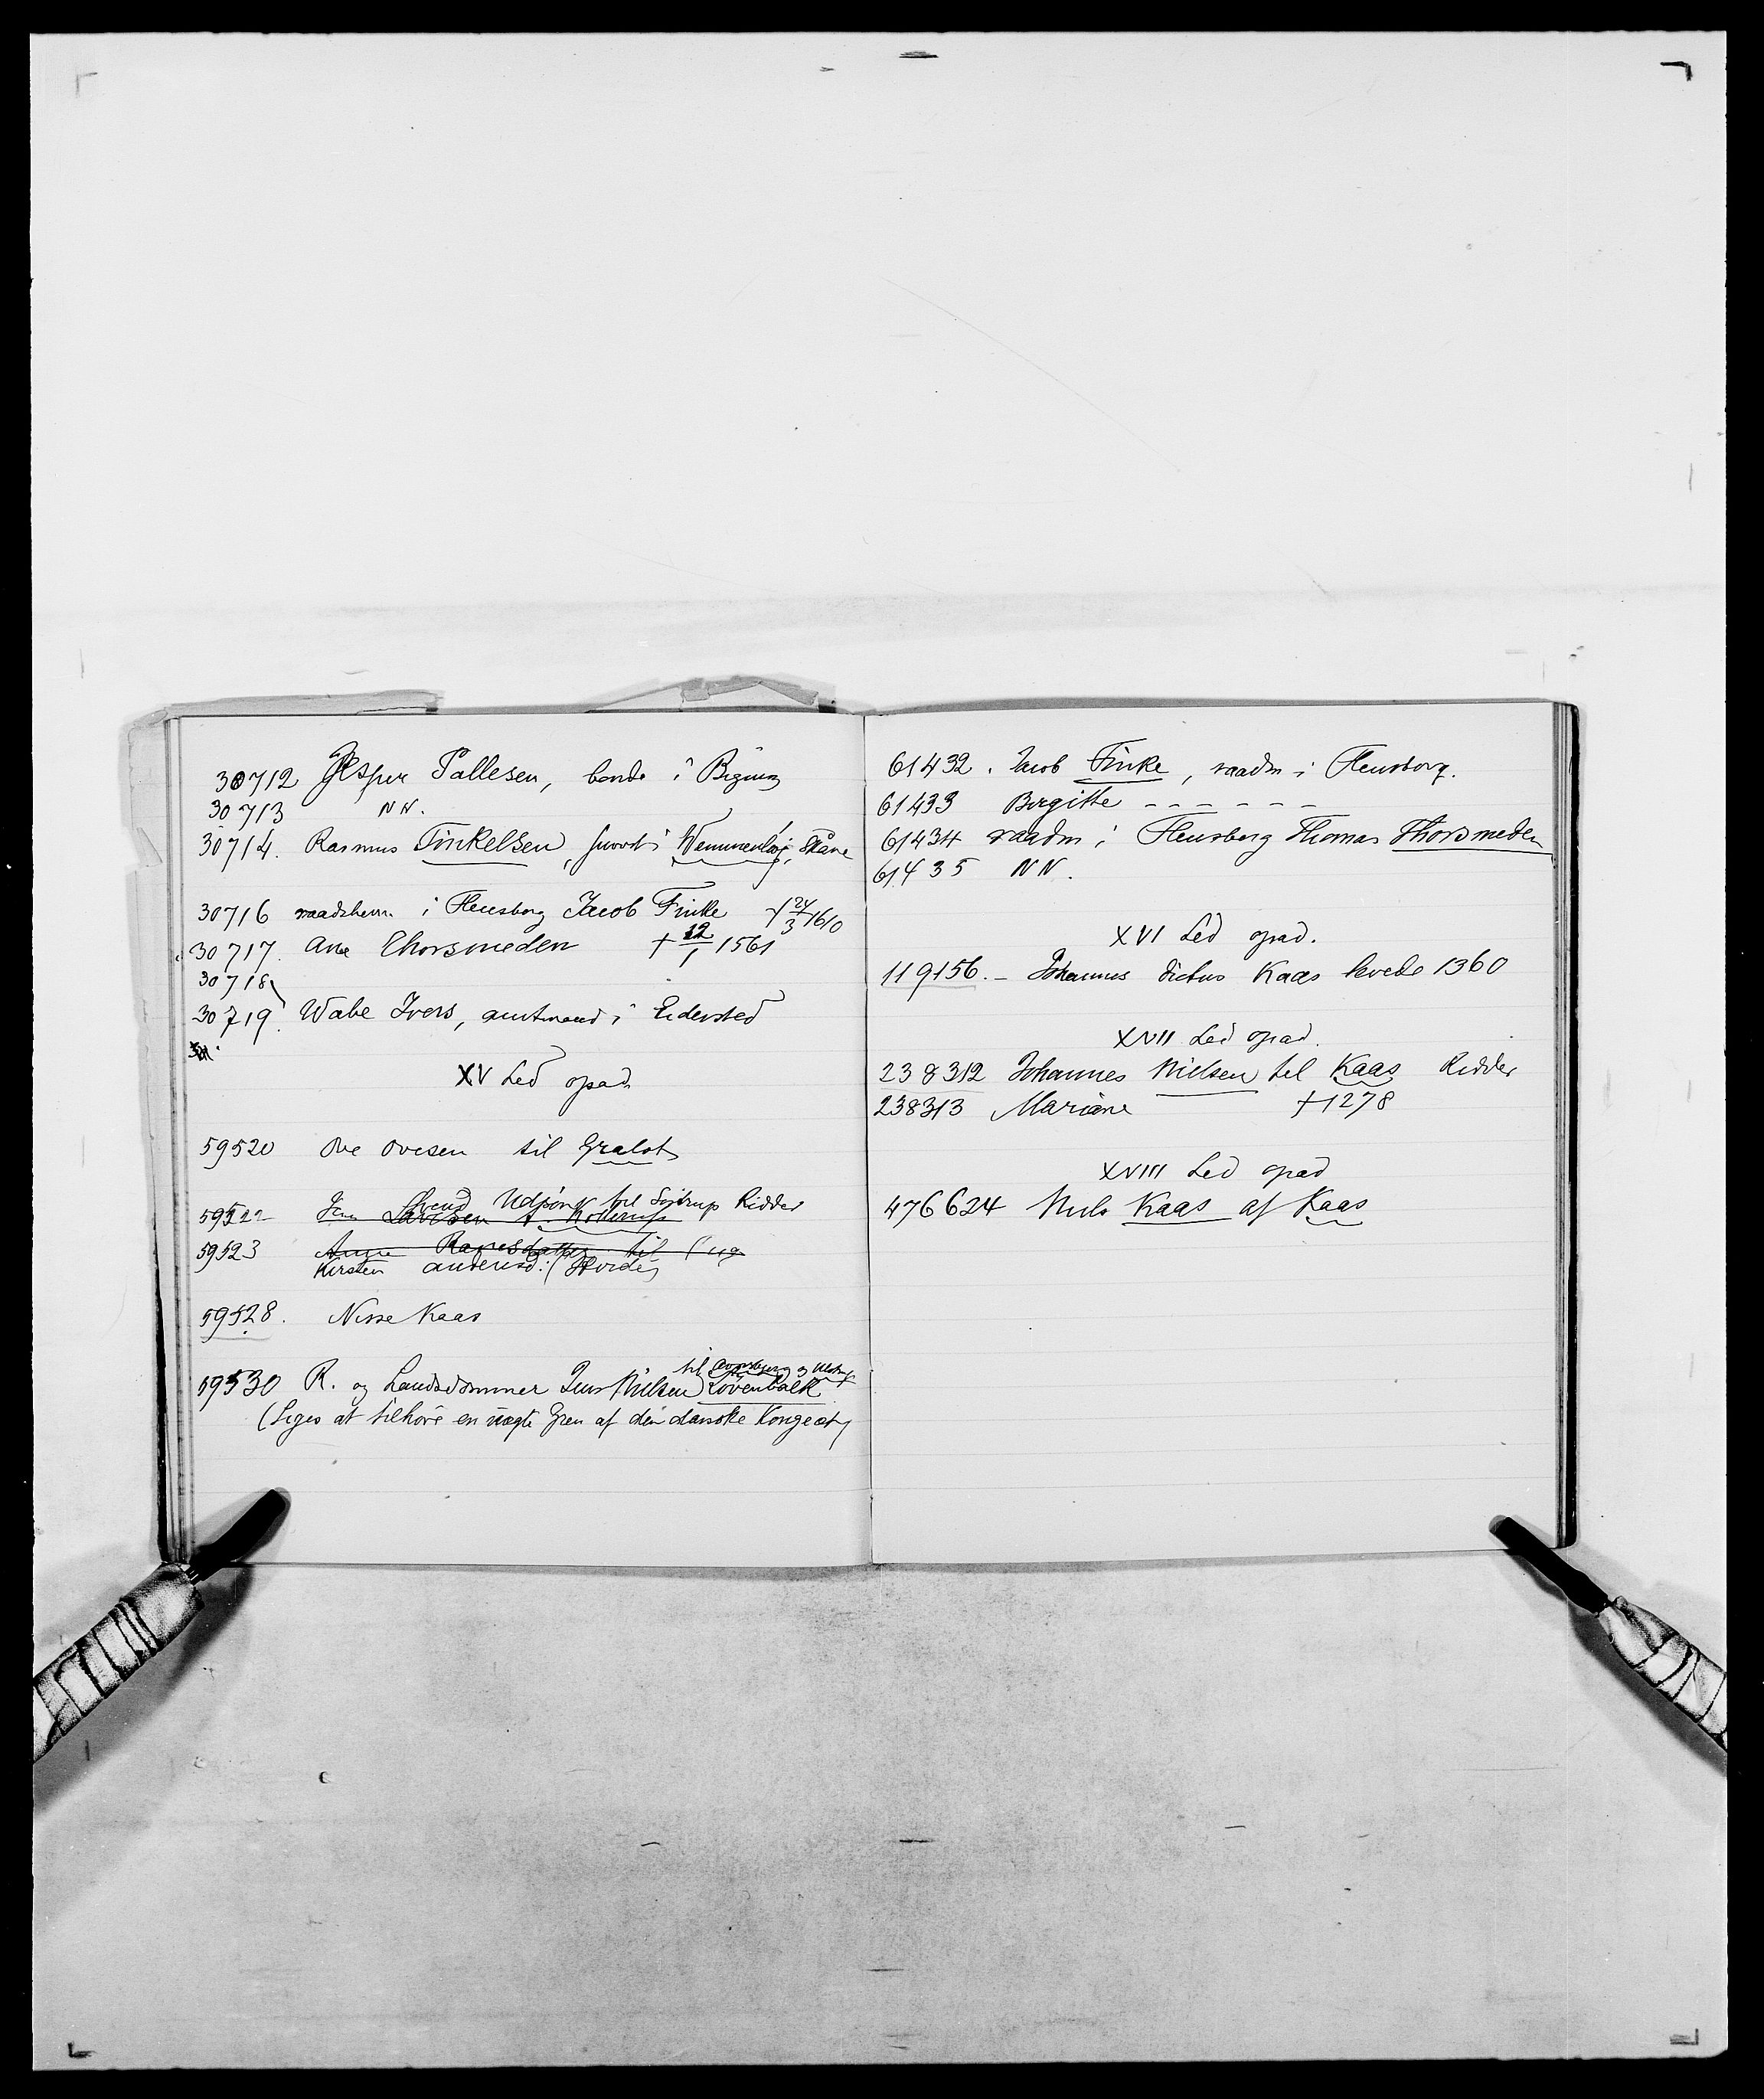 30712 Jesper Pallesen, bonde i
30713 NN.
30714. Rasmus Finkelsen, i Wemmenhøj, Skåne
30716 raadsherre i Flensborg Jacob Finke † 24/3 1610
30717. Ane Thorsmeden † 12/1 1561
30718
30719. Wabe Ivers, amtmand i Eidersted
XV Led opad
59520 Ove Ovesen til
59522 Svend Udsøn til Sostrup Ridder
Jens Lavesen t. Kollerup
59523 Anne til
Kirsten Andersd. (Hvide)
59528. Nisse Kaas
til og
59530 R. og Landsdommer Jens Nielsen Løvenbalk
(Siges at tilhøre en uægte Gren af den danske Kongeæt)
61432. Jacob Finke, raadm i Flensborg.
61433 Birgitte - - - - - -
61434 raadm i Flensborg Thomas Thorsmeden
61435 NN.
XVI Led opad.
119156. - Johannes dictus Kaas levede 1360
XVII Led opad.
238312 Johannes Nielsen til Kaas Ridder
238313 Mariane † 1278
XVIII Led opad
476624 Niels Kaas af Kaas